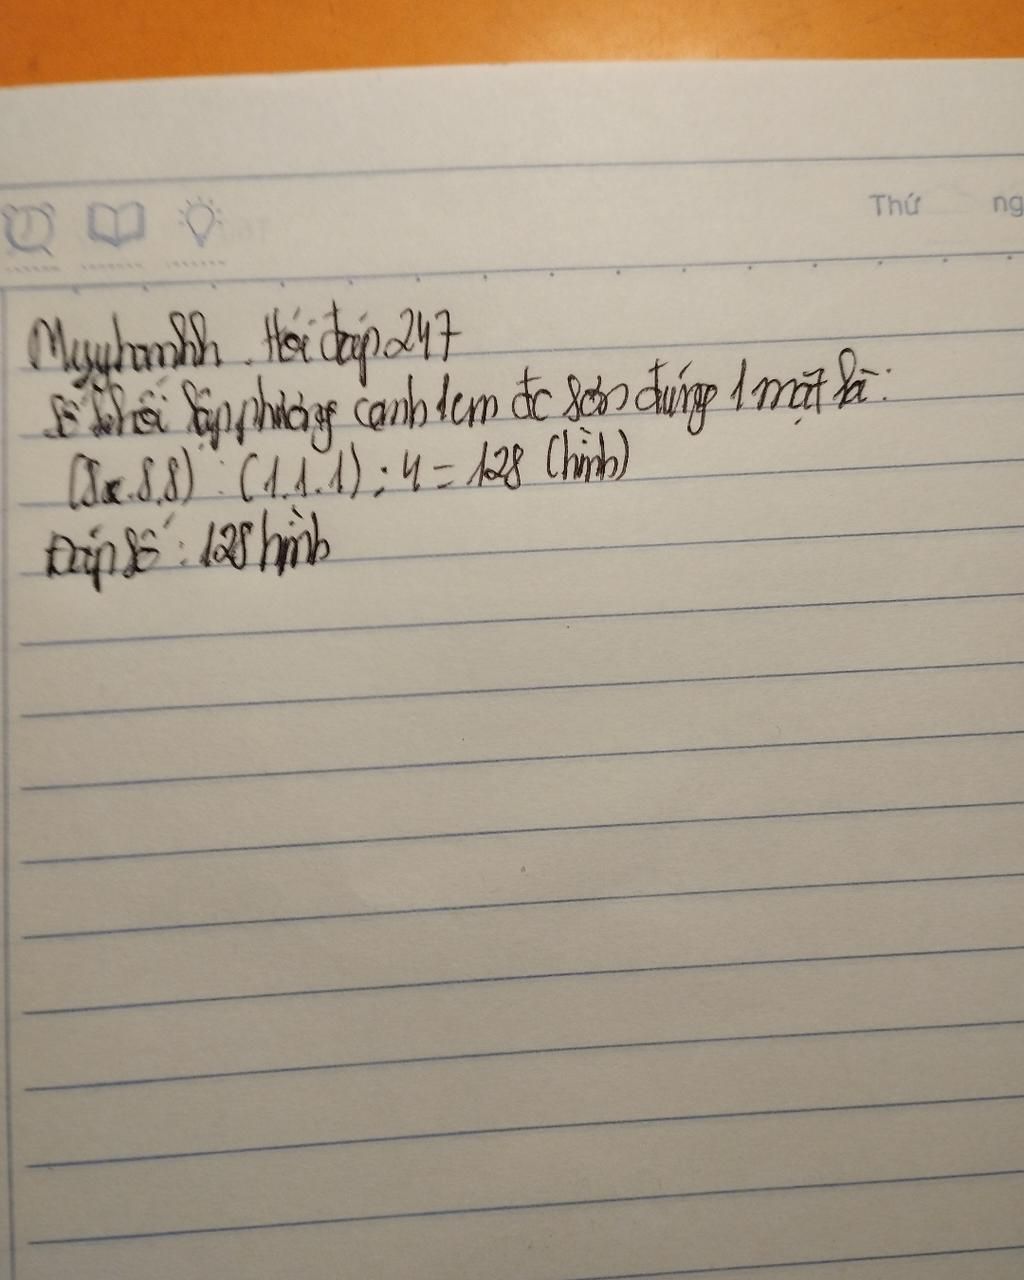 Thứ ng
Myyhanhh. Hỏi đáp 247
Số khối lập phương cạnh 1cm đc sơn đúng 1 mặt là:
(8x.8.8) : (1.1.1) : 4 = 128 (hình)
Đáp số : 128 hình